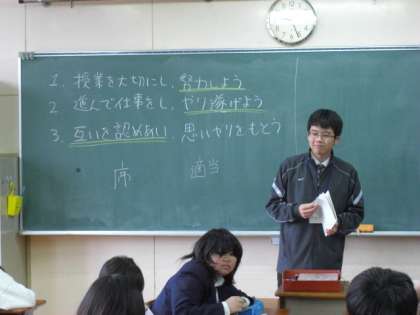 1. 授業を大切にし、努力しよう
2. 進んで仕事をし、やり遂げよう
3. 互いを認めあい、思いやりをもとう
序 適当